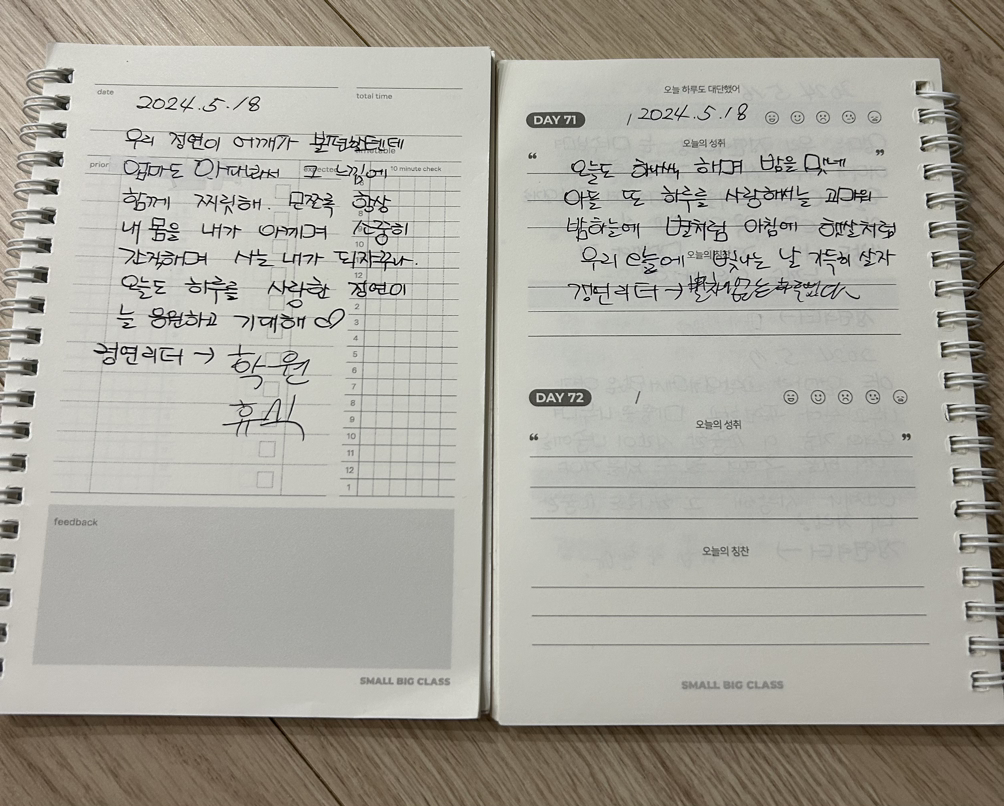 date
total time
2024.5.18
우리 정연이 어깨가 불편할텐데
timetable
prior
expected
10 minute check
엄마도 아파봐서 그 느낌에
함께 찌릿해. 모쪼록 항상
내 몸을 내가 아끼며 소중히
간직하며 사는 내가 되자꾸나.
오늘도 하루를 사랑한 정연이
늘 응원하고 기대해♡
정연리더 → 학원
휴식
8
10
11
12
2
3
4
5
6
7
8
9
10
11
12
1
feedback
SMALL BIG CLASS
오늘 하루도 대단했어
DAY 71
/ 2024.5.18
오늘의 성취
“ ”
오늘도 하며 밤을 맞네
아들 또 하루를 사랑해서늘 고마워
밤하늘에 별처럼 아침에 햇살처럼
오늘의 칭찬
우리 오늘에 빛나는 날 가득히 살자
정연리더 →
DAY 72
/
오늘의 성취
“ ”
오늘의 칭찬
SMALL BIG CLASS